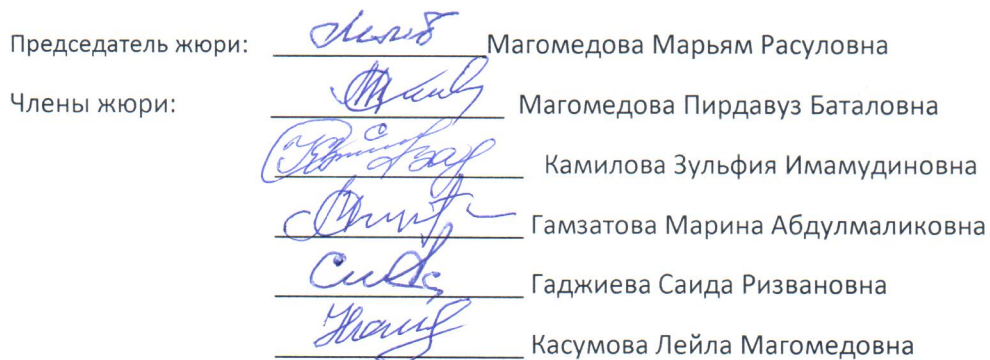 Председатель жюри: Магомедова Марьям Расуловна
Члены жюри: Магомедова Пирдавуз Баталовна
Камилова Зульфия Имамудиновна
Гамзатова Марина Абдулмаликовна
Гаджиева Саида Ризвановна
Касумова Лейла Магомедовна